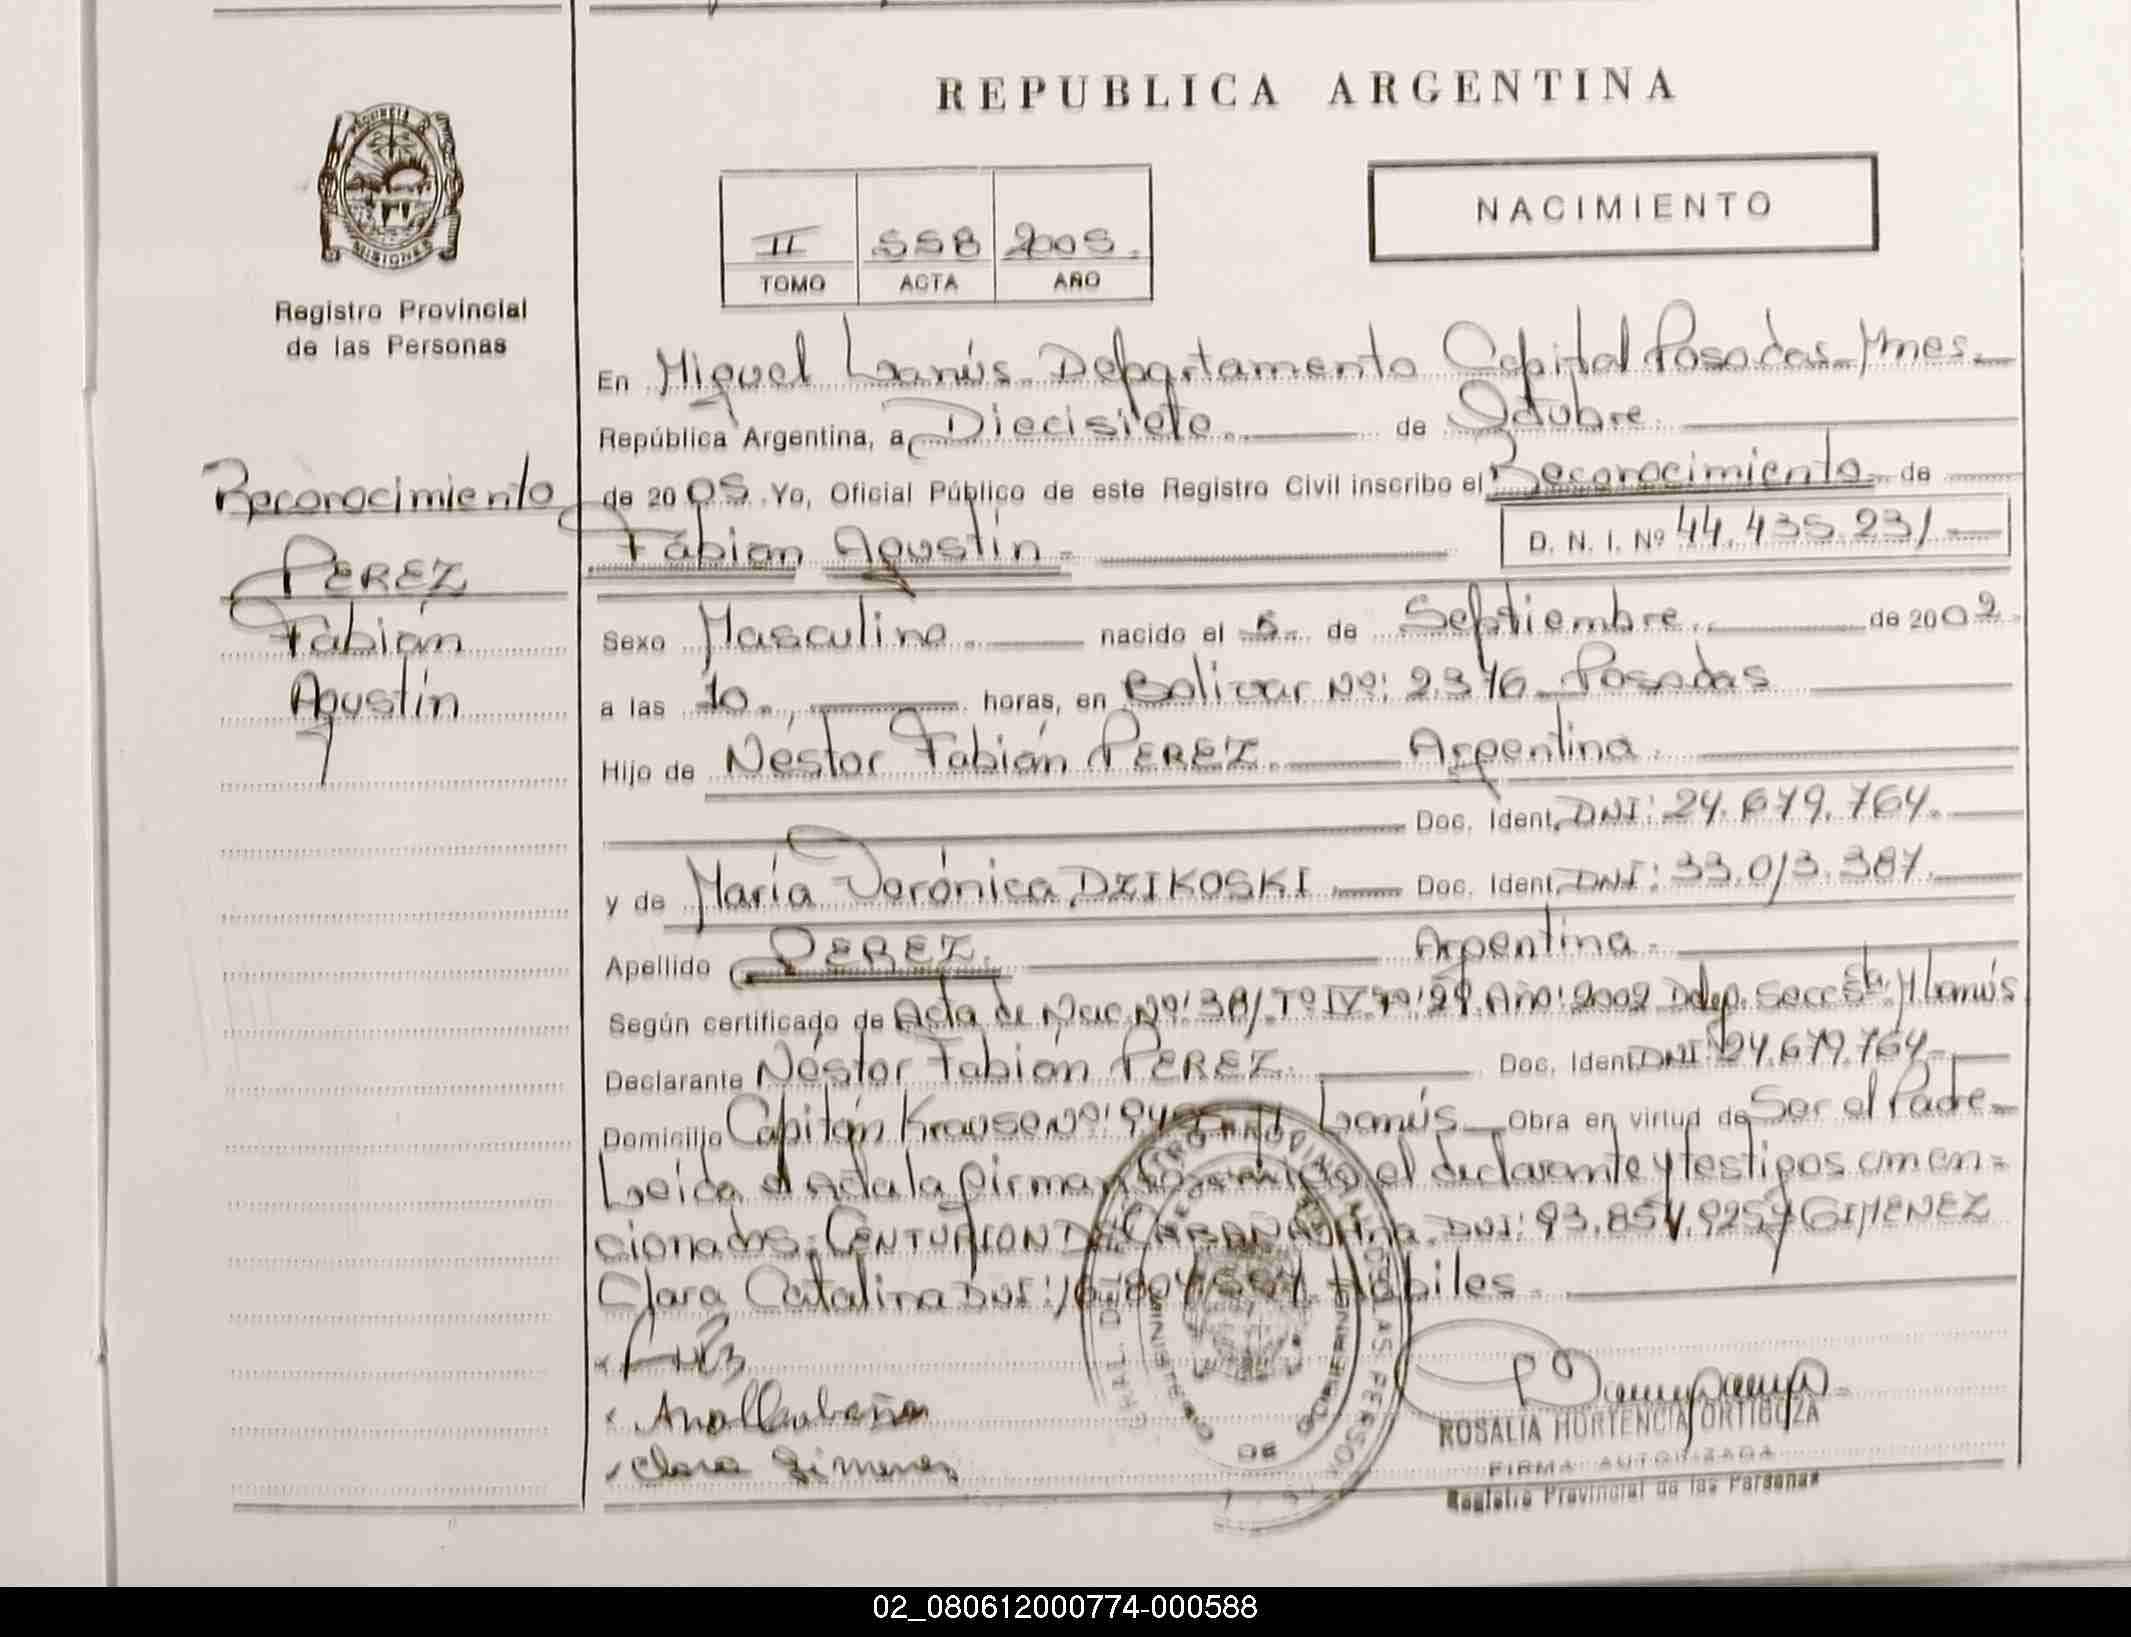 REPUBLICA ARGENTINA
PROVINCIA DE
MISIONES
Registro Provincial
de las Personas
NACIMIENTO
II 558 2005.
TOMO ACTA AÑO
En Miguel Lanús. Departamento Capital Posadas - Mnes.
República Argentina, a Diecisiete. de Octubre.
de 2005. Yo, Oficial Público de este Registro Civil inscribo el Reconocimiento de
Fabián Agustín - D. N. I. Nº 44.435.231
Reconocimiento
PEREZ
Fabián
Agustín
Sexo Masculino. nacido el 5. de Septiembre. de 2002
a las 10., horas, en Bolivar Nº: 2.376 Posadas
Hijo de Néstor Fabián PEREZ. Argentina.
Doc. Ident. DNI: 24.679.764.
y de María Verónica DZIKOSKI. Doc. Ident. DNI: 33.013.387.
Apellido PEREZ. Argentina.
Según certificado de Acta de Nac. Nº: 381. Tº IV. Año: 2002 Secc 5ta. M Lanús
Declarante Néstor Fabián PEREZ. Doc. Ident. DNI: 24.679.764
Domicilio Capitán Krause Nº: Lanús Obra en virtud de Ser el Padre
Leída el Acta la firman conmigo el declarante y testigos
cionados: CENTURION DE CABAÑA Ana. DNI: 93.854.925 y GIMENEZ
Clara Catalina DNI: Hábiles.
Ana Cabaña
Clara Gimenez
ROSALIA HORTENCIA ORTIGOZA
FIRMA AUTORIZADA
Registro Provincial de las Personas
02_080612000774-000588